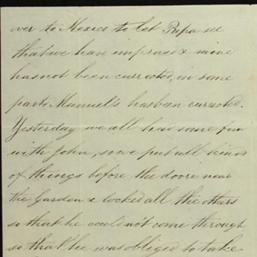 over to Mexico to let Papa see
that we have improved & mine
has not been corrected, in some
parts Manuel's has been corrected.
Yesterday we all had some fun
with John, so we put all kinds
of things before the doore near
the Garden & locked all the others
so that he could not come through
so that he was obliged to take